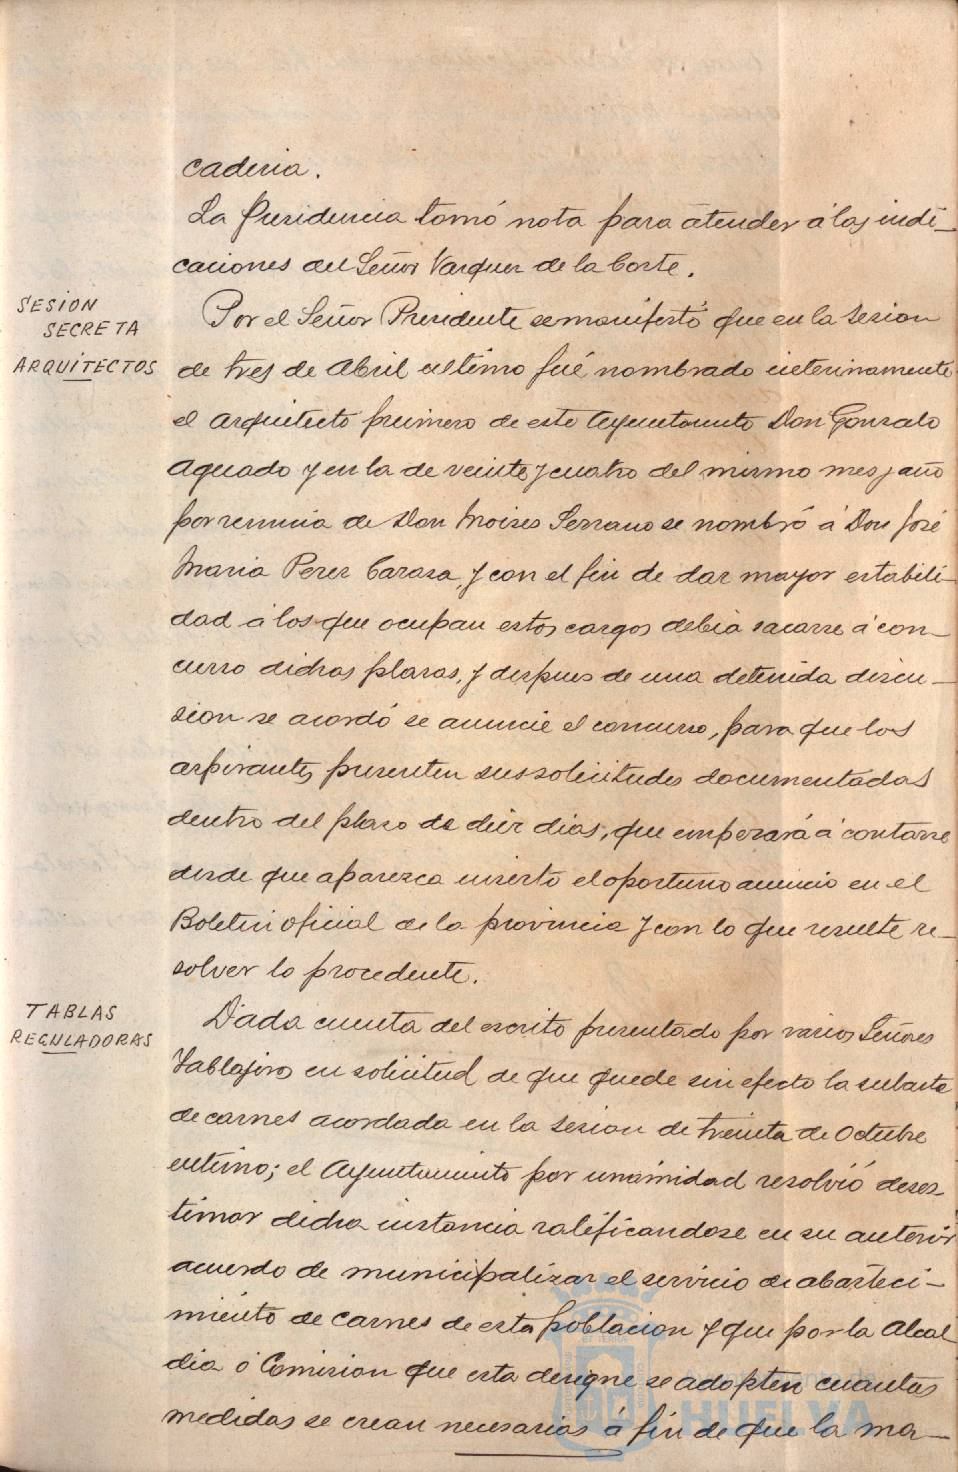 caderia.
La Presidencia tomó nota para atender á las indi-
caciones del Señor Vazquez de la Corte.
SESION
SECRETA
ARQUITECTOS
Por el Señor Presidente se manifestó que en la sesion
de tres de Abril ultimo fué nombrado interinamente
el Arquitecto primero de este Ayuntamiento Don Gonzalo
Aguado y en la de veinte y cuatro del mismo mes y año
por renuncia de Don Moises Serrano se nombró á Don José
Maria Perez Carasa, y con el fin de dar mayor estabili-
dad á los que ocupan estos cargos debia sacarse á con-
curso dichas plazas, y despues de una detenida discu-
sion se acordó se anuncie el concurso, para que los
aspirantes presenten sus solicitudes documentadas
dentro del plazo de diez dias, que empezará á contarse
desde que aparezca inserto el oportuno anuncio en el
Boletin oficial de la provincia y con lo que resulte re-
solver lo procedente.
TABLAS
REGULADORAS
Dada cuenta del escrito presentado por varios Señores
Tablajeros en solicitud de que quede sin efecto la subasta
de carnes acordada en la sesion de treinta de Octubre
ultimo; el Ayuntamiento por unanimidad resolvió deses-
timar dicha instancia ratificandose en su anterior
acuerdo de municipalizar el servicio de abasteci-
miento de carnes de esta poblacion y que por la Alcal
dia ó Comision que esta designe se adopten cuantas
medidas se crean necesarias á fin de que la ma-
HUELVA